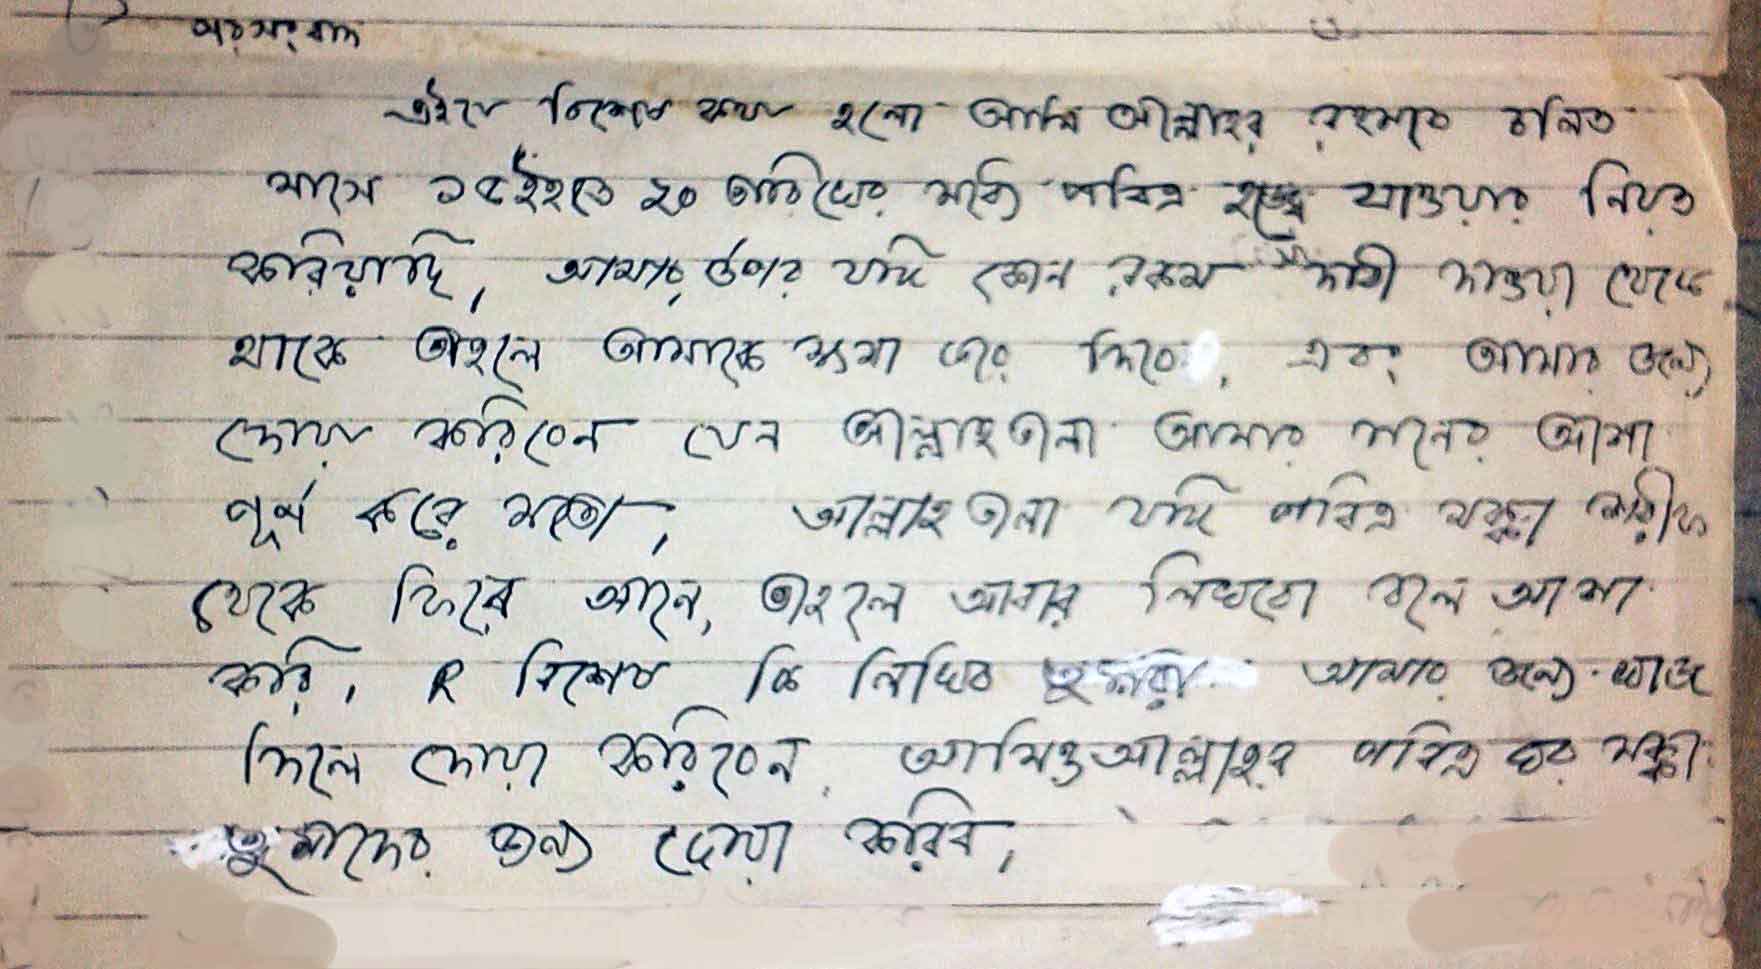 পরসংবাদ
এইযে বিশেষ কথা হলো আমি আল্লাহর রহমতে চলিত
মাসে ১৫ইহতে ২০ তারিখের মধ্যে পবিত্র হজ্বে যাওয়ার নিয়ত
করিয়াছি, আমার উপর যদি কোন রকম দাবী দাওয়া থেকে
থাকে তাহলে আমাকে ক্ষমা করে দিবে, এবং আমার জন্যে
দোয়া করিবেন যেন আল্লাহতালা আমার মনের আশা
পূর্ণ করে মতো, আল্লাহ তালা যদি পবিত্র মক্কা শরীফ
থেকে ফিরে আনে, তাহলে আবার লিখবো বলে আশা
করি, R বিশেষ কি লিখিব আমার জন্যে খাজ
দিলে দোয়া করিবেন, আমিও আল্লাহর পবিত্র ঘর মক্কা
তুমাদের জন্য দোয়া করিব,